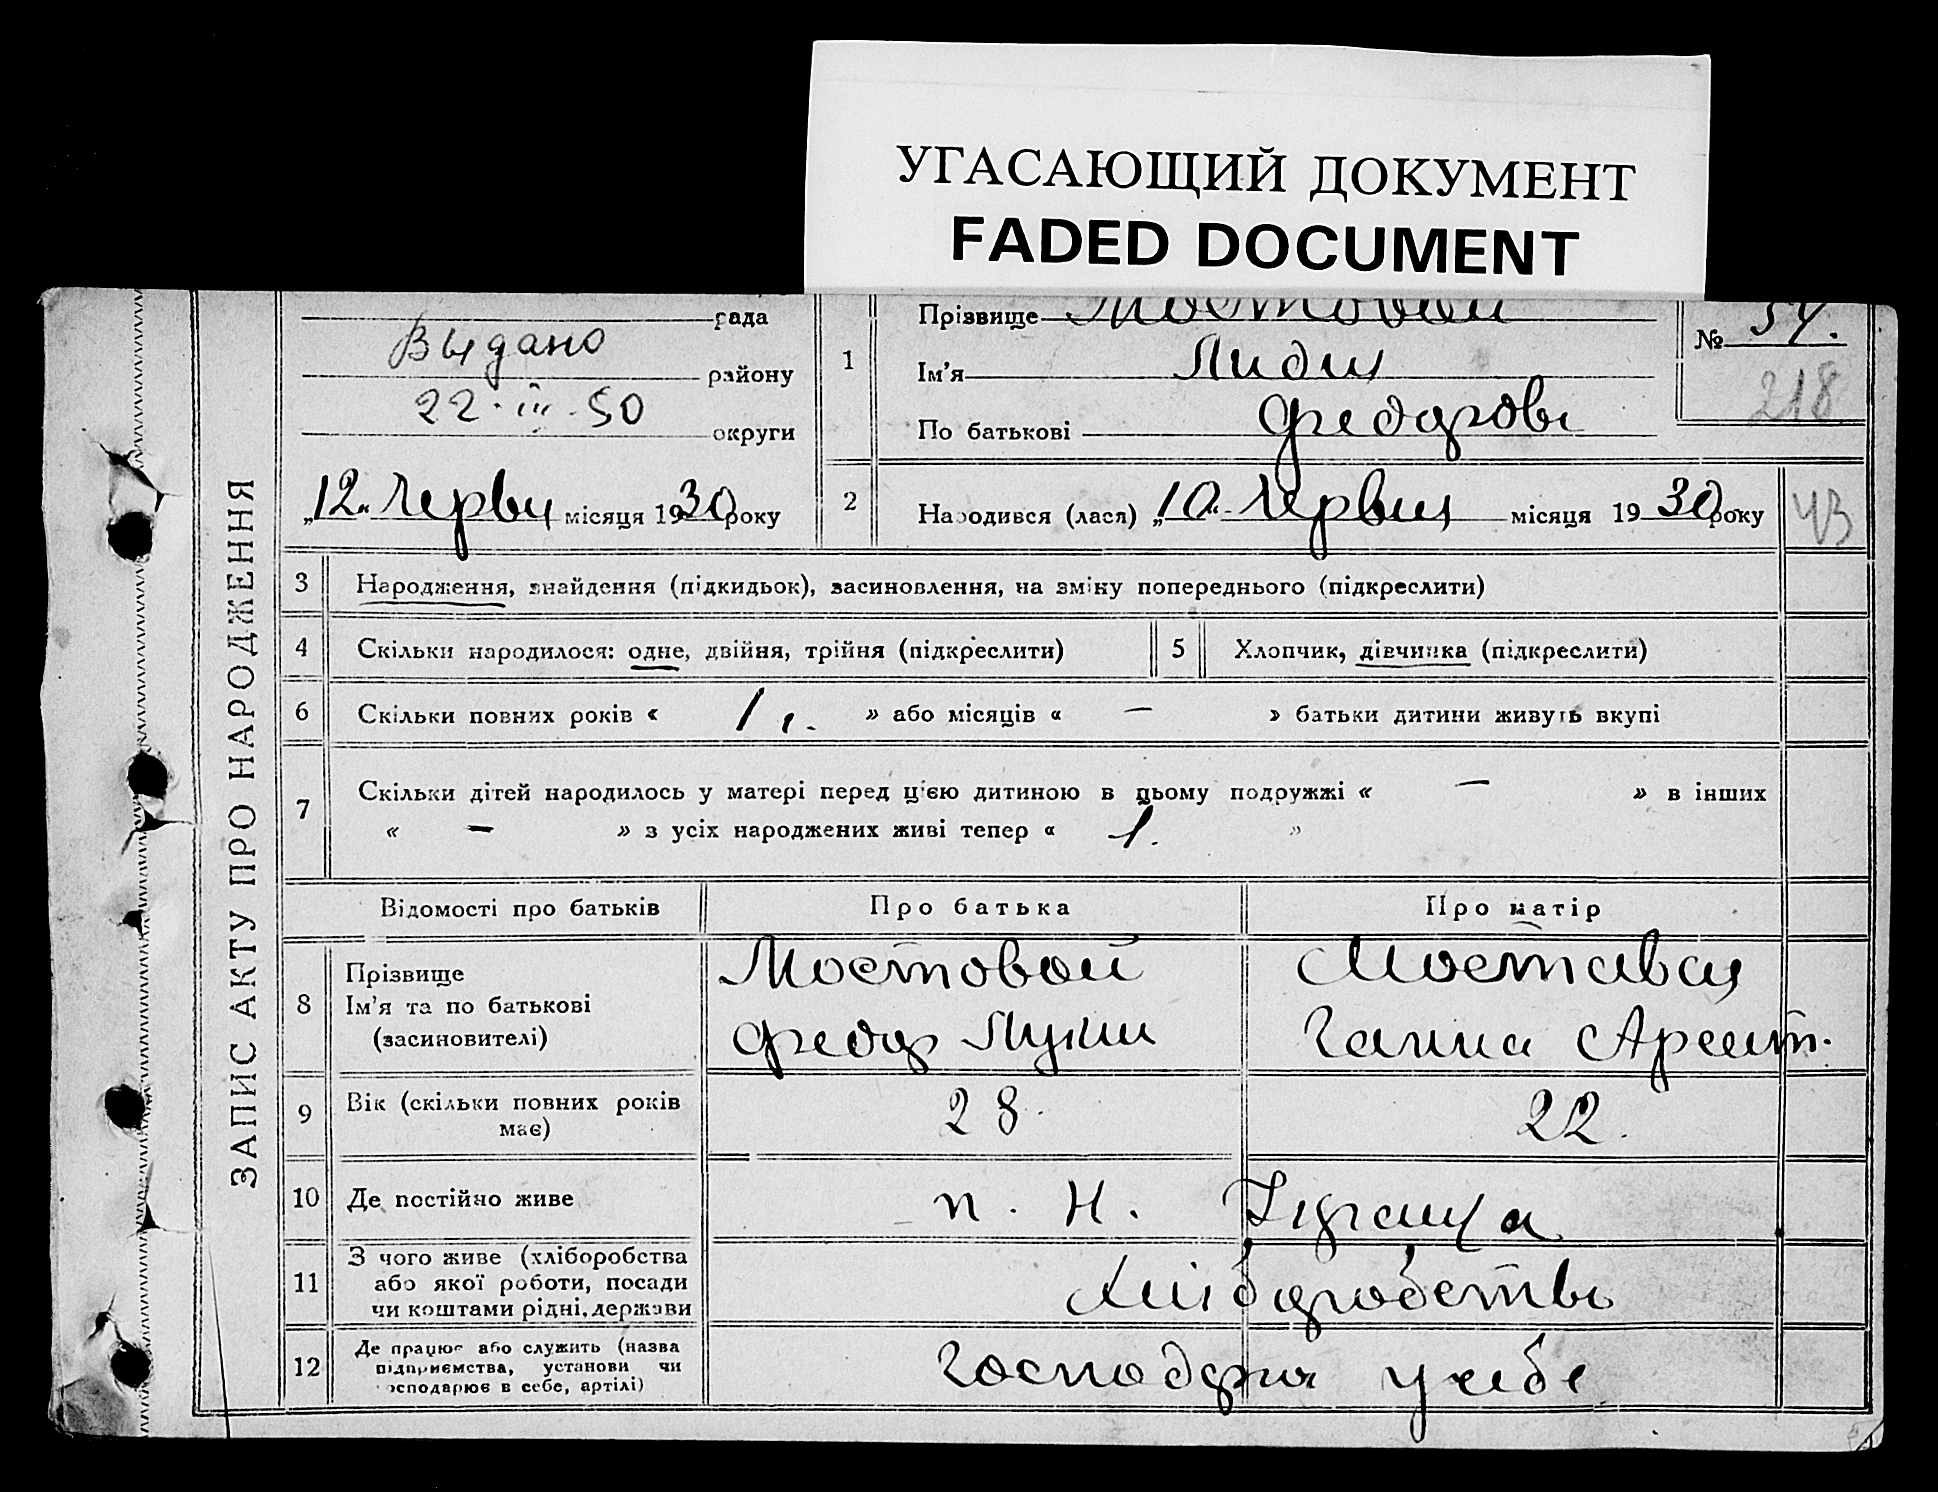 УГАСАЮЩИЙ ДОКУМЕНТ
FADED DOCUMENT
ЗАПИС АКТУ ПРО НАРОДЖЕННЯ
рада
Выдано
району
22.III.50
округи
„12“ Червн місяця 1930 року
1
Прізвище Мостовой
Ім'я Лидия
По батькові Федоровн
№ 54.
218
2
Народився (лася) „10“ Червня місяця 1930 року
43
3 Народження, знайдення (підкидьок), засиновлення, на зміку попереднього (підкреслити)
4 Скільки народилося: одне, двійня, трійня (підкреслити)
5 Хлопчик, дівчинка (підкреслити)
6 Скільки повних років « 1 г. » або місяців « — » батьки дитини живуть вкупі
7 Скільки дітей народилось у матері перед цією дитиною в цьому подружжі « — » в інших
« — » з усіх народжених живі тепер « 1. »
Відомості про батьків Про батька Про матір
8 Прізвище
Ім'я та по батькові
(засиновителі)
Мостовой
Федор
Мостовая
Ганна
9 Вік (скільки повних років
має)
28.
22.
10 Де постійно живе
п. Н.
11 З чого живе (хліборобства
або якої роботи, посади
чи коштами рідні, держави
Хліборобств
12 Де працює або служить (назва
підприємства, установи чи
господарює в себе, артілі)
Господаря у себе